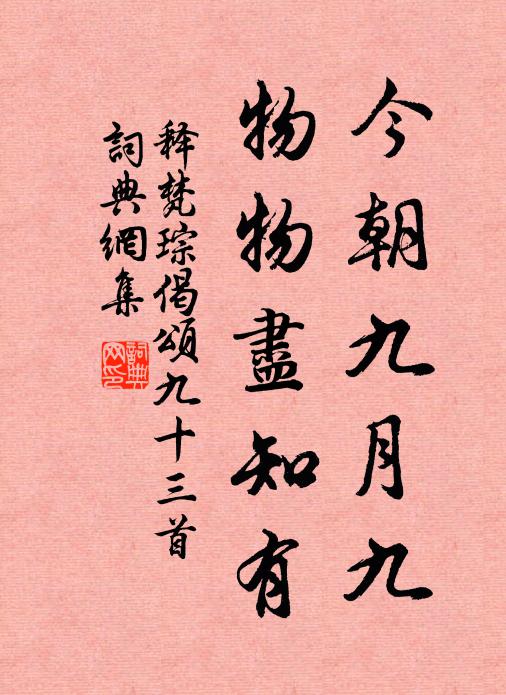 今朝九月九
物物盡知有
释梵琮偈頌九十三首
詞典網集
詞典网印